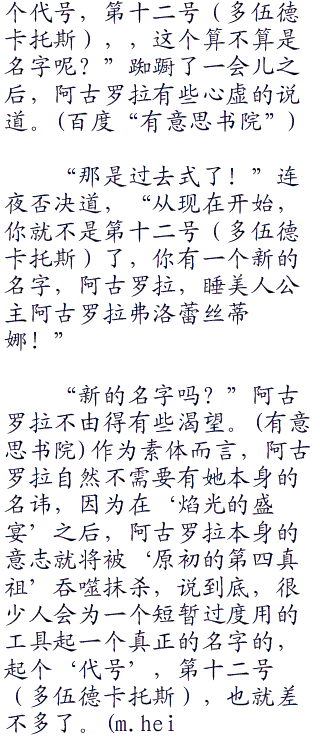 个代号，第十二号（多伍德
卡托斯），，这个算不算是
名字呢？”踟蹰了一会儿之
后，阿古罗拉有些心虚的说
道。(百度“有意思书院”)
“那是过去式了！”连
夜否决道，“从现在开始，
你就不是第十二号（多伍德
卡托斯）了，你有一个新的
名字，阿古罗拉，睡美人公
主阿古罗拉弗洛蕾丝蒂
娜！”
“新的名字吗？”阿古
罗拉不由得有些渴望。(有意
思书院)作为素体而言，阿古
罗拉自然不需要有她本身的
名讳，因为在‘焰光的盛
宴’之后，阿古罗拉本身的
意志就将被‘原初的第四真
祖’吞噬抹杀，说到底，很
少人会为一个短暂过度用的
工具起一个真正的名字的，
起个‘代号’，第十二号
（多伍德卡托斯），也就差
不多了。(m.hei